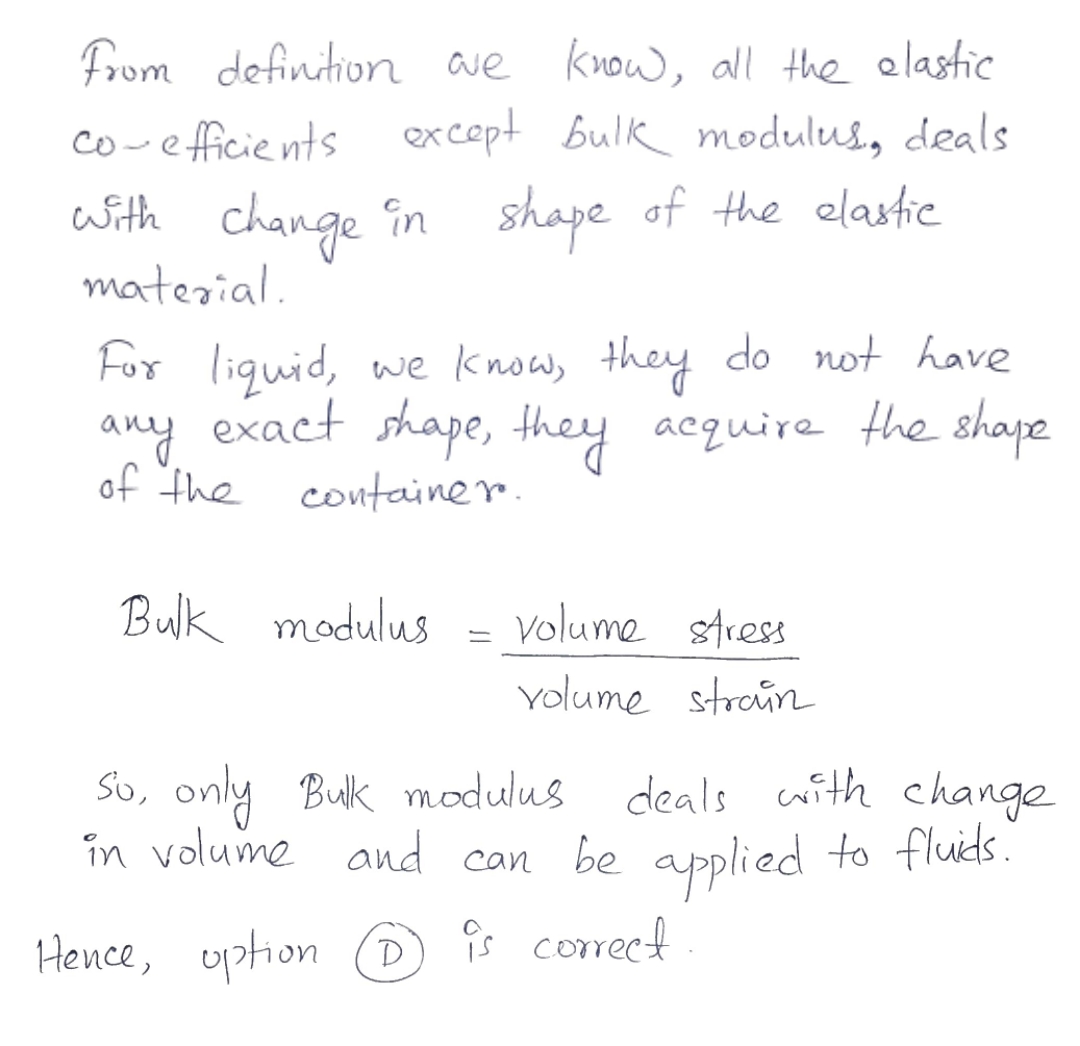 From definition we know, all the elastic
co-efficients except bulk modulus, deals
with change in shape of the elastic
material.
For liquid, we know, they do not have
any exact shape, they acquire the shape
of the container.
Bulk modulus = volume stress
volume strain
So, only Bulk modulus deals with change
in volume and can be applied to fluids.
Hence, option D is correct.